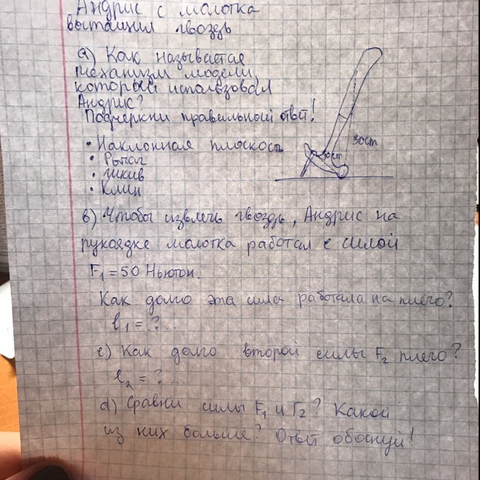 Андрис с молотка
вытащил гвоздь
а) Как называется
механизм модели,
который использовал
Андрис?
Подчеркни правильный ответ!
• Наклонная плоскость
• Рычаг
• Шкив
• Клин
30cm
cm
в) Чтобы извлечь гвоздь, Андрис на
рукоядке молотка работал с силой
F₁ = 50 Ньютон.
Как долго эта сила работала на плечо?
l₁ = ?...
с) Как долго второй силы F₂ плечо?
l₂ = ?...
d) Сравни силы F₁ и F₂? Какой
из них больше? Ответ обоснуй!